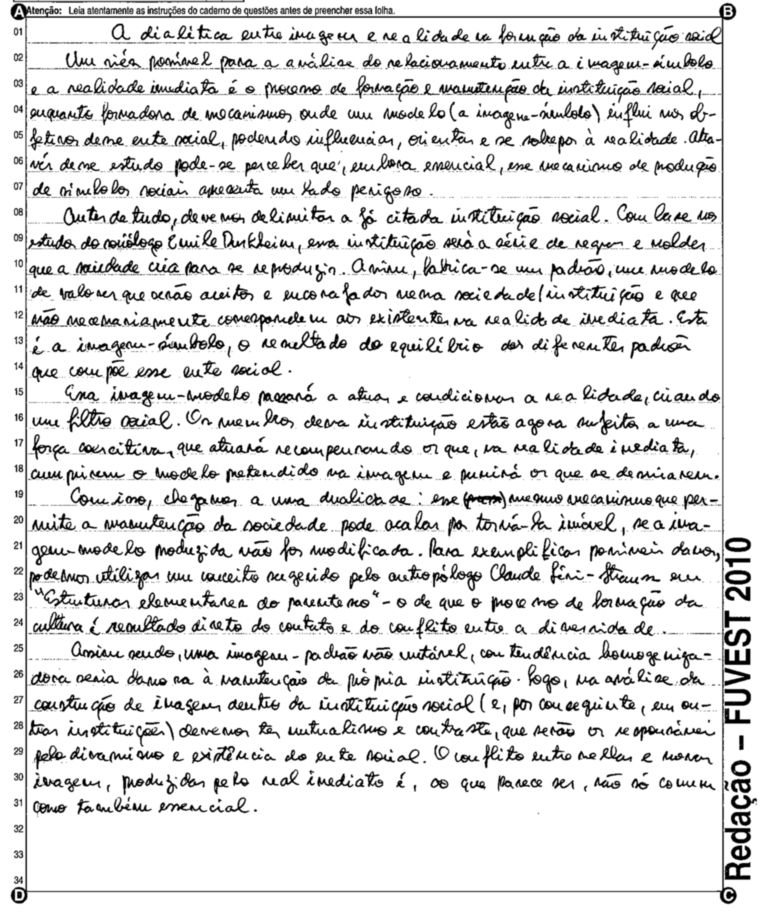 Atenção: Leia atentamente as instruções do caderno de questões antes de preencher essa folha.
A dialética entre imagem e realidade na formação da instituição social
Um viés possível para a análise do relacionamento entre a imagem-símbolo
e a realidade imediata é o processo de formação e manutenção da instituição social,
enquanto formadora de mecanismos onde um modelo (a imagem-símbolo) influi nos ob-
jetivos desse ente social, podendo influenciar, orientar e se sobrepor à realidade. Atra-
vés desse estudo pode-se perceber que, embora essencial, esse mecanismo de produção
de símbolos sociais apresenta um lado perigoso.
Antes de tudo, devemos delimitar a já citada instituição social. Com base nos
estudos do sociólogo Emile Durkheim, essa instituição será a série de regras e moldes
que a sociedade cria para se reproduzir. Assim, fabrica-se um padrão, um modelo
de valores que serão aceitos e encorajados nessa sociedade/instituição e que
não necessariamente correspondem aos existentes na realidade imediata. Esta
é a imagem-símbolo, o resultado do equilíbrio dos diferentes padrões
que compõe esse ente social.
Essa imagem-modelo passará a atuar e condicionar a realidade, criando
um filtro social. Os membros dessa instituição estão agora sujeitos a uma
força coercitiva, que atuará recompensando os que, na realidade imediata,
cumprirem o modelo pretendido na imagem e punirá os que se desviarem.
Com isso, chegamos a uma dualidade: esse mesmo mecanismo que per-
mite a manutenção da sociedade pode acabar por torná-la imóvel, se a ima-
gem-modelo produzida não for modificada. Para exemplificar possíveis danos,
podemos utilizar um conceito sugerido pelo antropólogo Claude Lévi-Strauss em
"Estruturas elementares do parentesco" - o de que o processo de formação da
cultura é resultado direto do contato e do conflito entre a diversidade.
Assim sendo, uma imagem-padrão não mutável, com tendência homogeniza-
dora seria danosa à manutenção da própria instituição. Logo, na análise da
construção de imagens dentro da instituição social (e, por conseguinte, em ou-
tras instituições) devemos ter mutualismo e contraste, que serão os responsáveis
pelo dinamismo e existência do ente social. O conflito entre velhas e novas
imagens, produzidas pelo real imediato é, ao que parece ser, não só comum
como também essencial.
Redação – FUVEST 2010